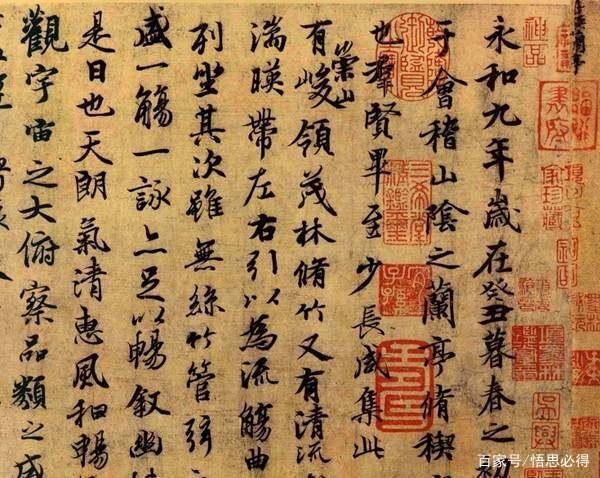 永和九年歲在癸丑暮春之初
于會稽山陰之蘭亭脩稧
也羣賢畢至少長咸集此
有崇山峻領茂林脩竹又有清流
湍暎帶左右引以為流觴曲
列坐其次雖無絲竹管弦
盛一觴一詠亦足以暢叙幽情
是日也天朗氣清惠風和暢
觀宇宙之大俯察品類之盛
神品
三希堂精鑑璽
宜子孫
百家号/悟思必得